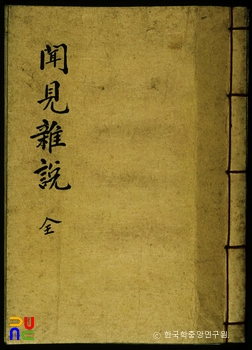 聞見雜說 全
© 한국학중앙연구원